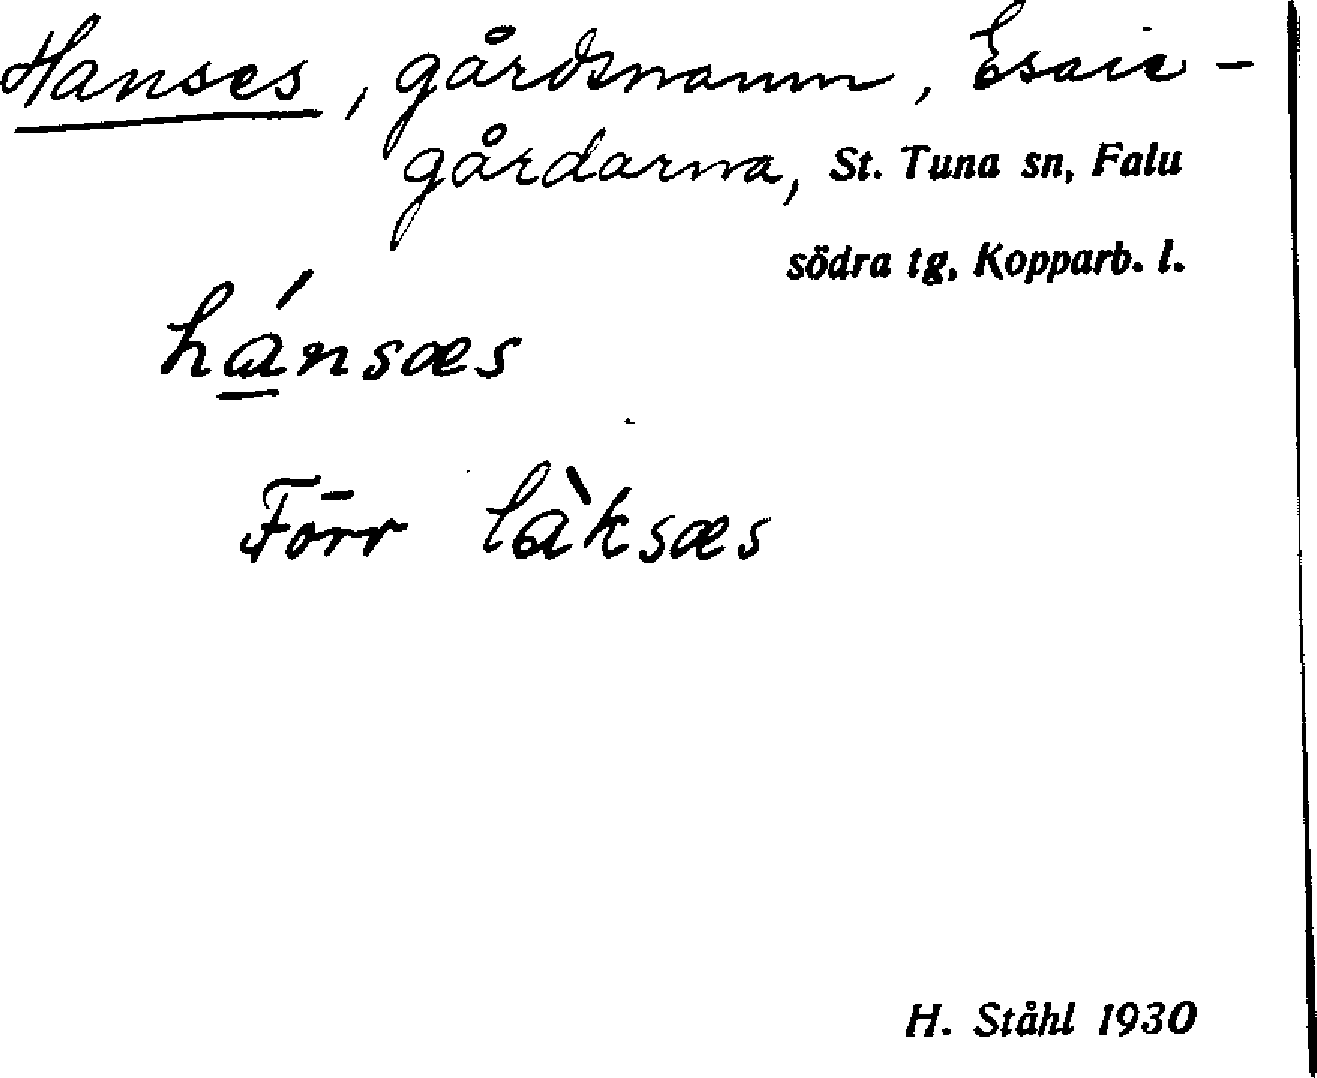 Hanses, gårdsnamn, Esaie-
gårdarna, St. Tuna sn, Falu
södra tg, Kopparb. l.
hánsæs
Förr làksæs
H. Ståhl 1930